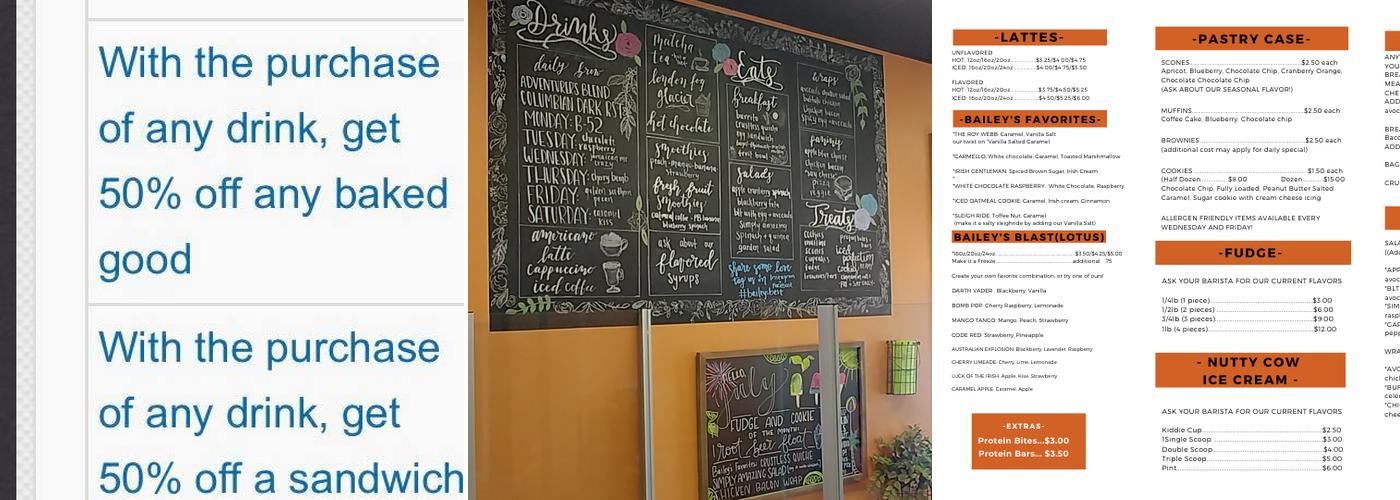 With the purchase
of any drink, get
50% off any baked
good
With the purchase
of any drink, get
50% off a sandwich
Drinks
daily brew
ADVENTURER'S BLEND
COLUMBIAN DARK RST
MONDAY: B-52
TUESDAY: chocolate raspberry
WEDNESDAY: jamaican me crazy
THURSDAY: cherry bomb
FRIDAY:
SATURDAY: caramel
americano
latte
cappuccino
iced coffee
matcha
tea
london fog
glacier
hot chocolate
smoothies
peach · mango · banana
strawberry
fresh fruit
smoothies
ask about our
flavored
syrups
Eats
breakfast
burrito
crustless quiche
egg sandwich
fruit bowl
salads
apple cranberry spinach
blackberry feta
blt with egg + avocado
simply amazing
spinach + quinoa
garden salad
share some love
tag us on
#baileysbest
wraps
avocado chicken salad
buffalo chicken
chicken bacon
spicy egg + avocado
paninis
apple blue cheese
chicken bacon
"say cheese"
pizza
veggie
Treats
cookies
muffins
scones
cupcakes
fudge
HELLO,
July
FUDGE AND COOKIE
OF THE MONTH:
root beer float
Bailey's Favorites: CRUSTLESS QUICHE
SIMPLY AMAZING SALAD
CHICKEN BACON WRAP
-LATTES-
UNFLAVORED
HOT: 12oz/16oz/20oz............$3.25/$4.00/$4.75
ICED: 16oz/20oz/24oz............$4.00/$4.75/$5.50
FLAVORED
HOT: 12oz/16oz/20oz............$3.75/$4.50/$5.25
ICED: 16oz/20oz/24oz............$4.50/$5.25/$6.00
-BAILEY'S FAVORITES-
*THE ROY WEBB: Caramel, Vanilla Salt
our twist on "Vanilla Salted Caramel
*CARMELLO: White chocolate, Caramel, Toasted Marshmallow
*IRISH GENTLEMAN: Spiced Brown Sugar, Irish Cream
*WHITE CHOCOLATE RASPBERRY: White Chocolate, Raspberry
*ICED OATMEAL COOKIE: Caramel, Irish cream, Cinnamon
*SLEIGH RIDE: Toffee Nut, Caramel
(make it a salty sleighride by adding our Vanilla Salt)
BAILEY'S BLAST(LOTUS)
*16oz/20oz/24oz............$3.50/$4.25/$5.00
Make it a Freeze............additional .75
Create your own favorite combination, or try one of ours!
DARTH VADER : Blackberry, Vanilla
BOMB POP: Cherry Raspberry, Lemonade
MANGO TANGO: Mango, Peach, Strawberry
CODE RED: Strawberry, Pineapple
AUSTRALIAN EXPLOSION: Blackberry, Lavender, Raspberry
CHERRY LIMEADE: Cherry, Lime, Lemonade
LUCK OF THE IRISH: Apple, Kiwi, Strawberry
CARAMEL APPLE: Caramel, Apple
-EXTRAS-
Protein Bites...$3.00
Protein Bars... $3.50
-PASTRY CASE-
SCONES............$2.50 each
Apricot, Blueberry, Chocolate Chip, Cranberry Orange,
Chocolate Chocolate Chip
(ASK ABOUT OUR SEASONAL FLAVOR!)
MUFFINS............$2.50 each
Coffee Cake, Blueberry, Chocolate chip
BROWNIES............$2.50 each
(additional cost may apply for daily special)
COOKIES............$1.50 each
(Half Dozen............ $8.00 Dozen............$15.00
Chocolate Chip, Fully Loaded, Peanut Butter Salted
Caramel, Sugar cookie with cream cheese icing
ALLERGEN FRIENDLY ITEMS AVAILABLE EVERY
WEDNESDAY AND FRIDAY!
-FUDGE-
ASK YOUR BARISTA FOR OUR CURRENT FLAVORS
1/4lb (1 piece)............$3.00
1/2lb (2 pieces)............$6.00
3/4lb (3 pieces)............$9.00
1lb (4 pieces)............$12.00
- NUTTY COW
ICE CREAM -
ASK YOUR BARISTA FOR OUR CURRENT FLAVORS
Kiddie Cup............$2.50
1Single Scoop............$3.00
Double Scoop............$4.00
Triple Scoop............$5.00
Pint............$6.00